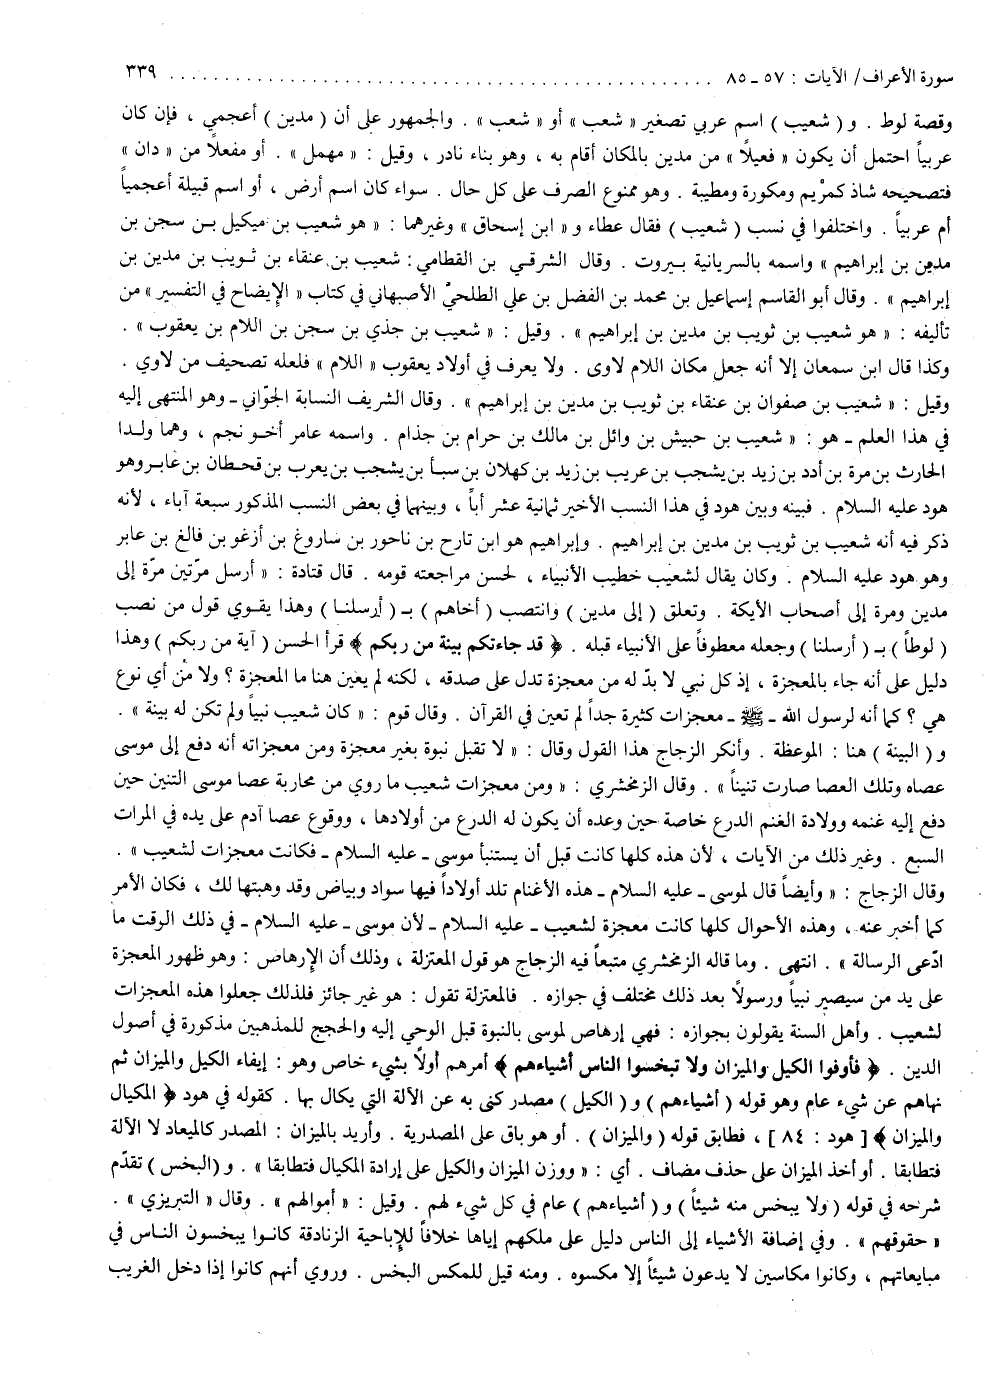 سورة الأعراف/ الآيات : ٥٧ ـ ٨٥ ........................................ ٣٣٩
وقصة لوط . و ( شعيب ) اسم عربي تصغير « شعب » أو « شعب » . والجمهور على أن ( مدين ) أعجمي ، فإن كان
عربياً احتمل أن يكون « فعيلاً » من مدين بالمكان أقام به ، وهو بناء نادر ، وقيل : « مهمل » . أو مفعلاً من « دان »
فتصحيحه شاذ كمرْيم ومكورة ومطيبة . وهو ممنوع الصرف على كل حال . سواء كان اسم أرض ، أو اسم قبيلة أعجمياً
أم عربياً . واختلفوا في نسب ( شعيب ) فقال عطاء و « ابن إسحاق » وغيرهما : « هو شعيب بن ميكيل بـن سجن بن
مدين بن إبراهيم » واسمه بالسريانية بـيروت . وقال الشرقي بن القطامي : شعيب بن عنقاء بن ثـويب بن مدين بن
إبراهيم » . وقال أبو القاسم إسماعيل بن محمد بن الفضل بن علي الطلحيُّ الأصبهاني في كتاب « الإيضاح في التفسير » من
تأليفه : « هو شعيب بن ثويب بن مدين بن إبراهيم » . وقيل : « شعيب بن جذي بن سجن بن اللام بن يعقوب » .
وكذا قال ابن سمعان إلا أنه جعل مكان اللام لاوى . ولا يعرف في أولاد يعقوب « اللام » فلعله تصحيف من لاوي .
وقيل : « شعيب بن صفوان بن عنقاء بن ثويب بن مدين بن إبراهيم » . وقال الشريف النسابة الجوّاني ـ وهو المنتهى إليه
في هذا العلم ـ هو : « شعيب بن حبيش بن وائل بن مالك بن حرام بن جذام . واسمه عامر أخـو نجم ، وهما ولـدا
الحارث بن مرة بن أدد بن زيد بن يشجب بن عريب بن زيد بن كهلان بن سبأ بن يشجب بن يعرب بن قحطان بن عابر وهو
هود عليه السلام . فبينه وبين هود في هذا النسب الأخير ثمانية عشر أباً ، وبينهما في بعض النسب المذكور سبعة آباء ، لأنه
ذكر فيه أنه شعيب بن ثويب بن مدين بن إبراهيم . وإبراهيم هو ابن تارح بن ناحور بن ساروغ بن أزغو بن فالغ بن عابر
وهو هود عليه السلام . وكان يقال لشعيب خطيب الأنبياء ، لحسن مراجعته قومه . قال قتادة : « أرسل مرّتين مرّة إلى
مدين ومرة إلى أصحاب الأيكة . وتعلق ( إلى مدين ) وانتصب ( أخاهم ) بـ ( أرسلنـا ) وهذا يقـوي قول من نصب
( لوطاً ) بـ ( أرسلنا ) وجعله معطوفاً على الأنبياء قبله . ﴿ قد جاءتكم بينة من ربكم ﴾ قرأ الحسن ( آية من ربكم ) وهذا
دليل على أنه جاء بالمعجزة ، إذ كل نبي لا بدّ له من معجزة تدل على صدقه ، لكنه لم يعين هنا ما المعجزة ؟ ولا منْ أي نوع
هي ؟ كما أنه لرسول الله ـ ﷺ ـ معجزات كثيرة جداً لم تعين في القرآن . وقال قوم : « كان شعيب نبياً ولم تكن له بينة » .
و ( البينة ) هنا : الموعظة . وأنكر الزجاج هذا القول وقال : « لا تقبل نبوة بغير معجزة ومن معجزاته أنه دفع إلى موسى
عصاه وتلك العصا صارت تنيناً » . وقال الزمخشري : « ومن معجزات شعيب ما روي من محاربة عصا موسى التنين حين
دفع إليه غنمه وولادة الغنم الدرع خاصة حين وعده أن يكون له الدرع من أولادها ، ووقوع عصا آدم على يده في المرات
السبع . وغير ذلك من الآيات ، لأن هذه كلها كانت قبل أن يستنبأ موسى ـ عليه السلام ـ فكانت معجزات لشعيب » .
وقال الزجاج : « وأيضاً قال لموسى ـ عليه السلام ـ هذه الأغنام تلد أولاداً فيها سواد وبياض وقد وهبتها لك ، فكان الأمر
كما أخبر عنه ، وهذه الأحوال كلها كانت معجزة لشعيب ـ عليه السلام ـ لأن موسى ـ عليه السلام ـ في ذلك الوقت ما
ادّعى الرسالة » . انتهى . وما قاله الزمخشري متبعاً فيه الزجاج هو قول المعتزلة ، وذلك أن الإرهاص : وهو ظهور المعجزة
على يد من سيصير نبياً ورسولاً بعد ذلك مختلف في جوازه . فالمعتزلة تقول : هو غير جائز فلذلك جعلوا هذه المعجزات
لشعيب . وأهل السنة يقولون بجوازه : فهي إرهاص لموسى بالنبوة قبل الوحي إليه والحجج للمذهبين مذكورة في أصول
الدين . ﴿ فأوفوا الكيل والميزان ولا تبخسوا الناس أشياءهم ﴾ أمرهم أولاً بشيء خاص وهو : إيفاء الكيل والميزان ثم
نهاهم عن شيء عام وهو قوله ( أشياءهم ) و ( الكيل ) مصدر كنى به عن الآلة التي يكال بها . كقوله في هود ﴿ المكيال
والميزان ﴾ [ هود : ٨٤ ] ، فطابق قوله ( والميزان ) . أو هو باق على المصدرية . وأريد بالميزان : المصدر كالميعاد لا الآلة
فتطابقا . أو أخذ الميزان على حذف مضاف . أي : « ووزن الميزان والكيل على إرادة المكيال فتطابقا » . و ( البخس ) تقدّم
شرحه في قوله ( ولا يبخس منه شيئاً ) و ( أشياءهم ) عام في كل شيء لهم . وقيل : « أموالهم » . وقال « التبريزي » .
« حقوقهم » . وفي إضافة الأشياء إلى الناس دليل على ملكهم إياها خلافاً للإباحية الزنادقة كانـوا يبخسون النـاس في
مبايعاتهم ، وكانوا مكاسين لا يدعون شيئاً إلا مكسوه . ومنه قيل للمكس البخس . وروي أنهم كانوا إذا دخل الغريب